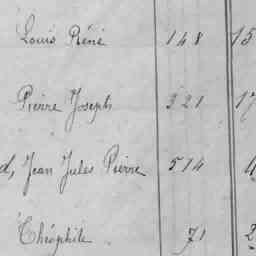 Louis Réné 148 15
Pierre Joseph 321 17
d, Jean Jules Pierre 514
Théophile 71 2